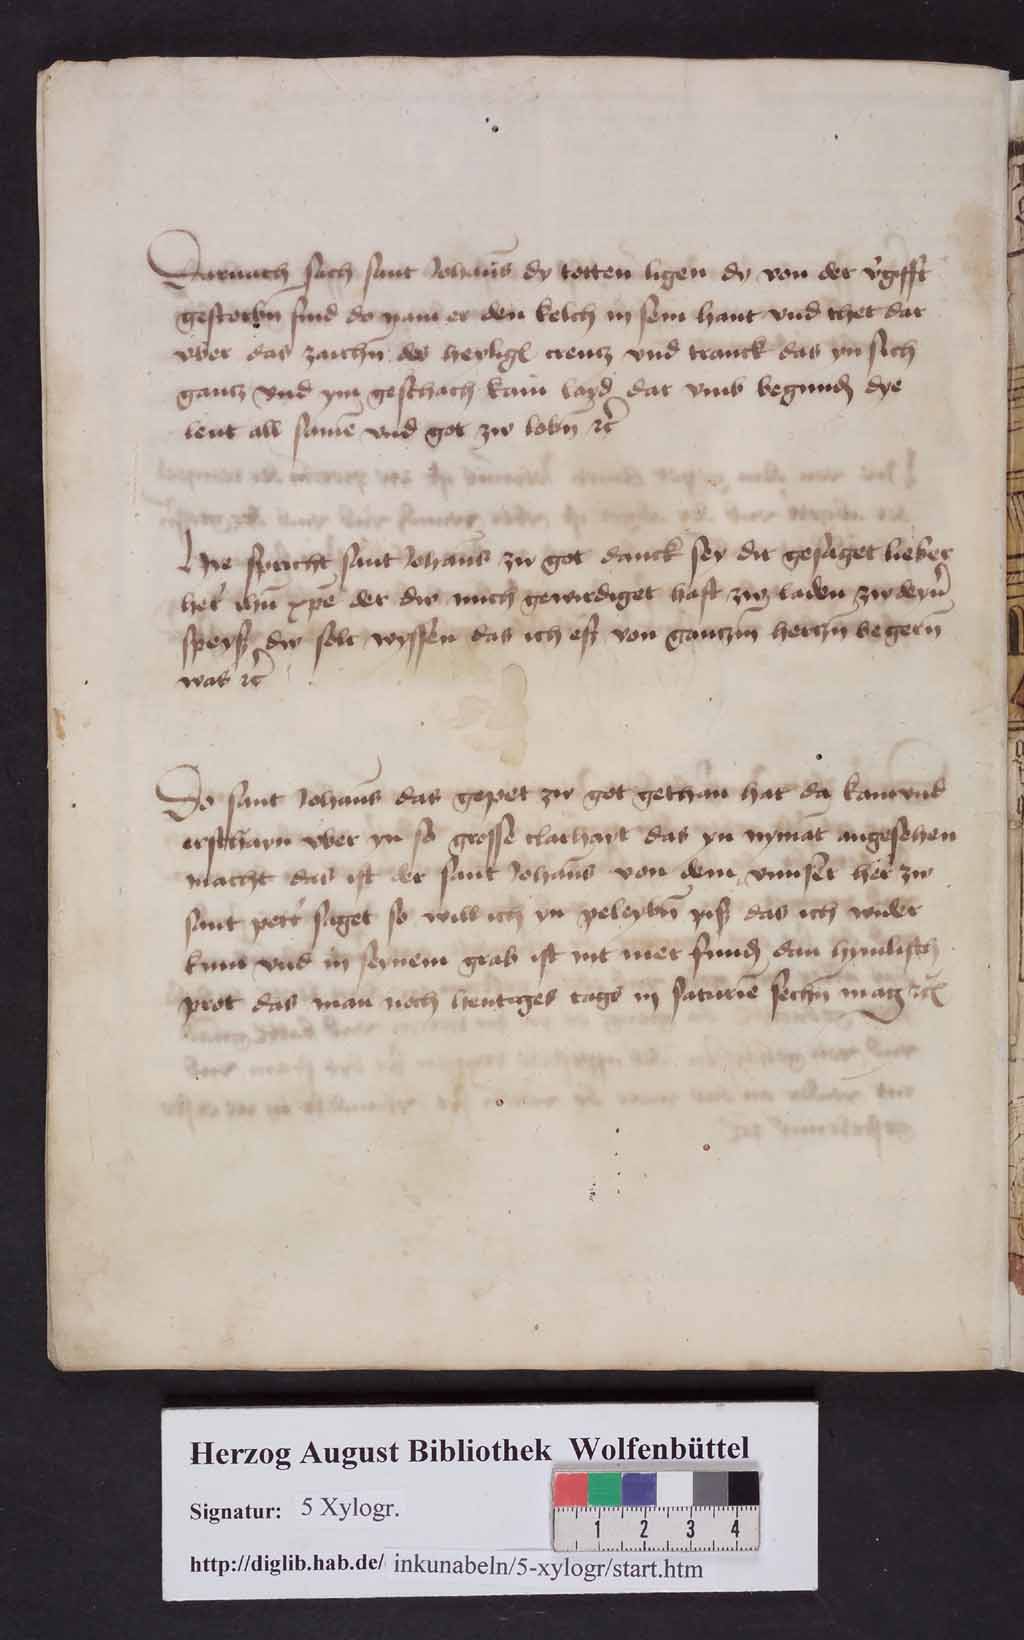 Darnach sach sant Johans dy totten ligen dy von der v̓gifft
gestorbn̄ sind do nam er den kelch in sein hant vnd thet dar
vber das zaichn̄ des heyligl creutz vnd tranck das yn sich
gantz vnd ym geschach kain layd dar vmb begund dye
leut all samē vnd got zw lobn̄ ⁊c̓
Hye spricht sant Johans zu got danck sey dir gesaget lieber
her̓ ihū xpē der dw mich gewirdiget hast zw laden zw deyn̓
speyß dw solt wyssen das ich eß von gantzm̄ hertzn̄ begern̄
was ⁊c̓
Do sant Johans das gepet zw got gethan hat da kam vnd
erschayn vber yn so grosse clarhayt das yn nymāt angesehen
macht das ist der sant Johans von dem vnnser her zw
sant peter saget so will ich yn peleybn̄ piß das ich wider
kum vnd in seynem grab ist nit mer fund dan hymlisch
prot das man noch heutiges tags in saturie sechn̄ mag ⁊c̓
Herzog August Bibliothek Wolfenbüttel
Signatur: 5 Xylogr.
1 2 3 4
http://diglib.hab.de/ inkunabeln/5-xylogr/start.htm